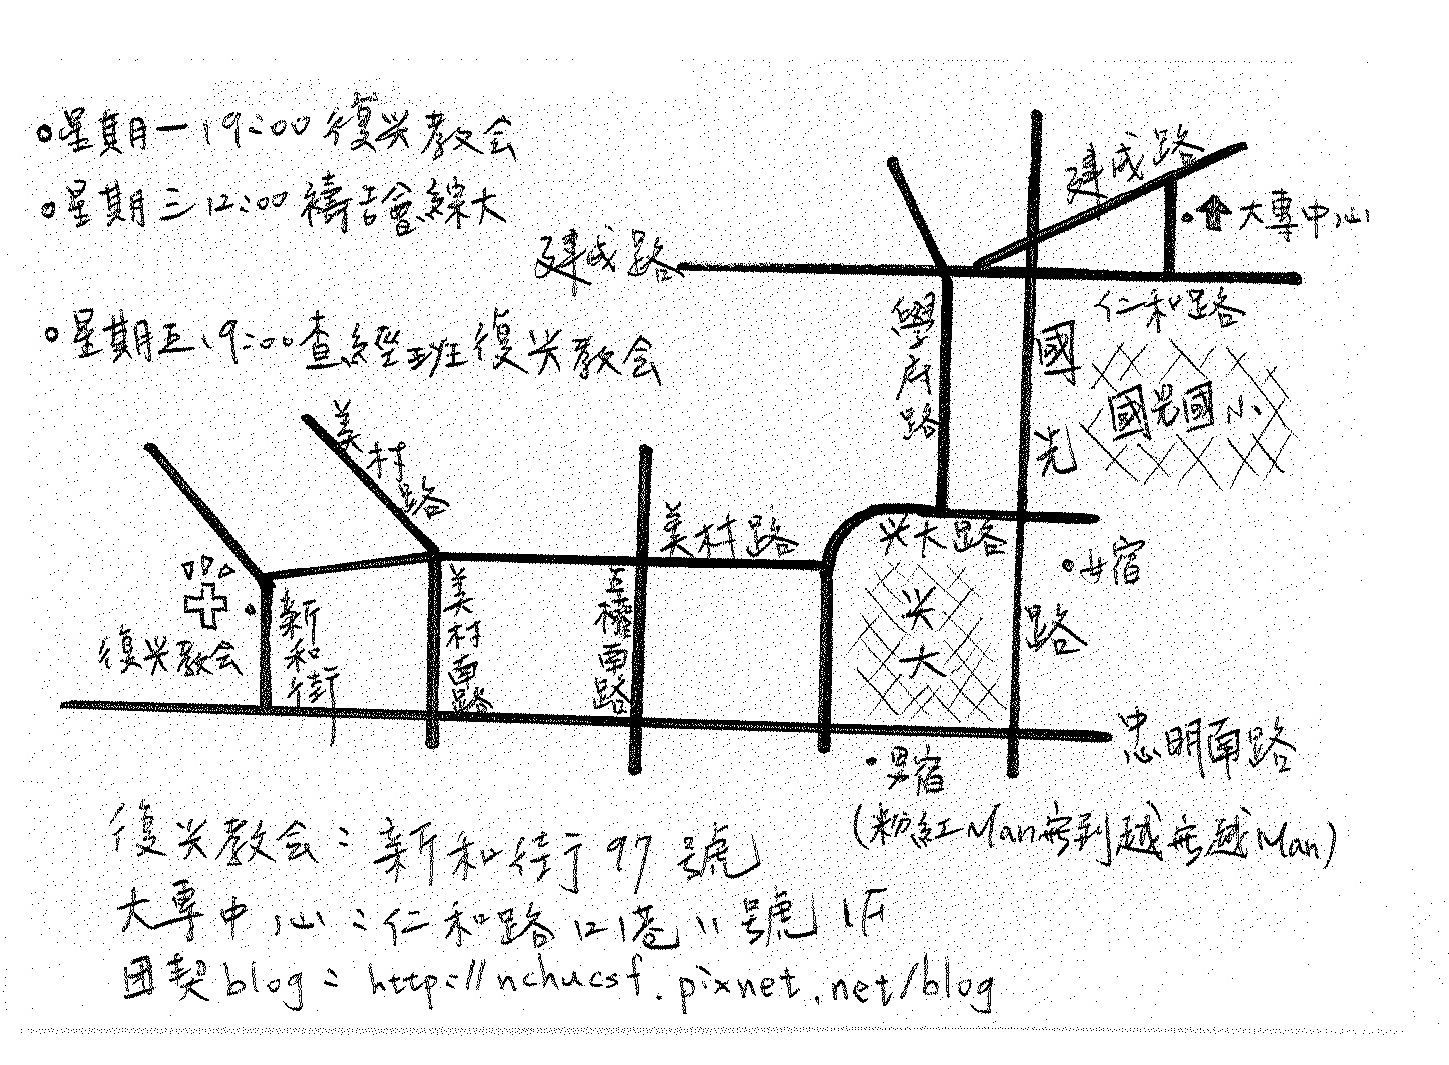 •星期一 19:00 復兴教会
•星期三 12:00 禱告會 綜大
•星期五 19:00 查經班 復兴教会
建成路
建成路
大專中心
仁和路
學府路
國光路
國光國小
美村路
美村路
兴大路
女宿
兴大
復兴教会
新和街
美村南路
南路
忠明南路
男宿
(粉紅Man 到越 越Man)
復兴教会:新和街97號
大專中心:仁和路12巷11號1F
团契blog:http://nchucsf.pixnet.net/blog